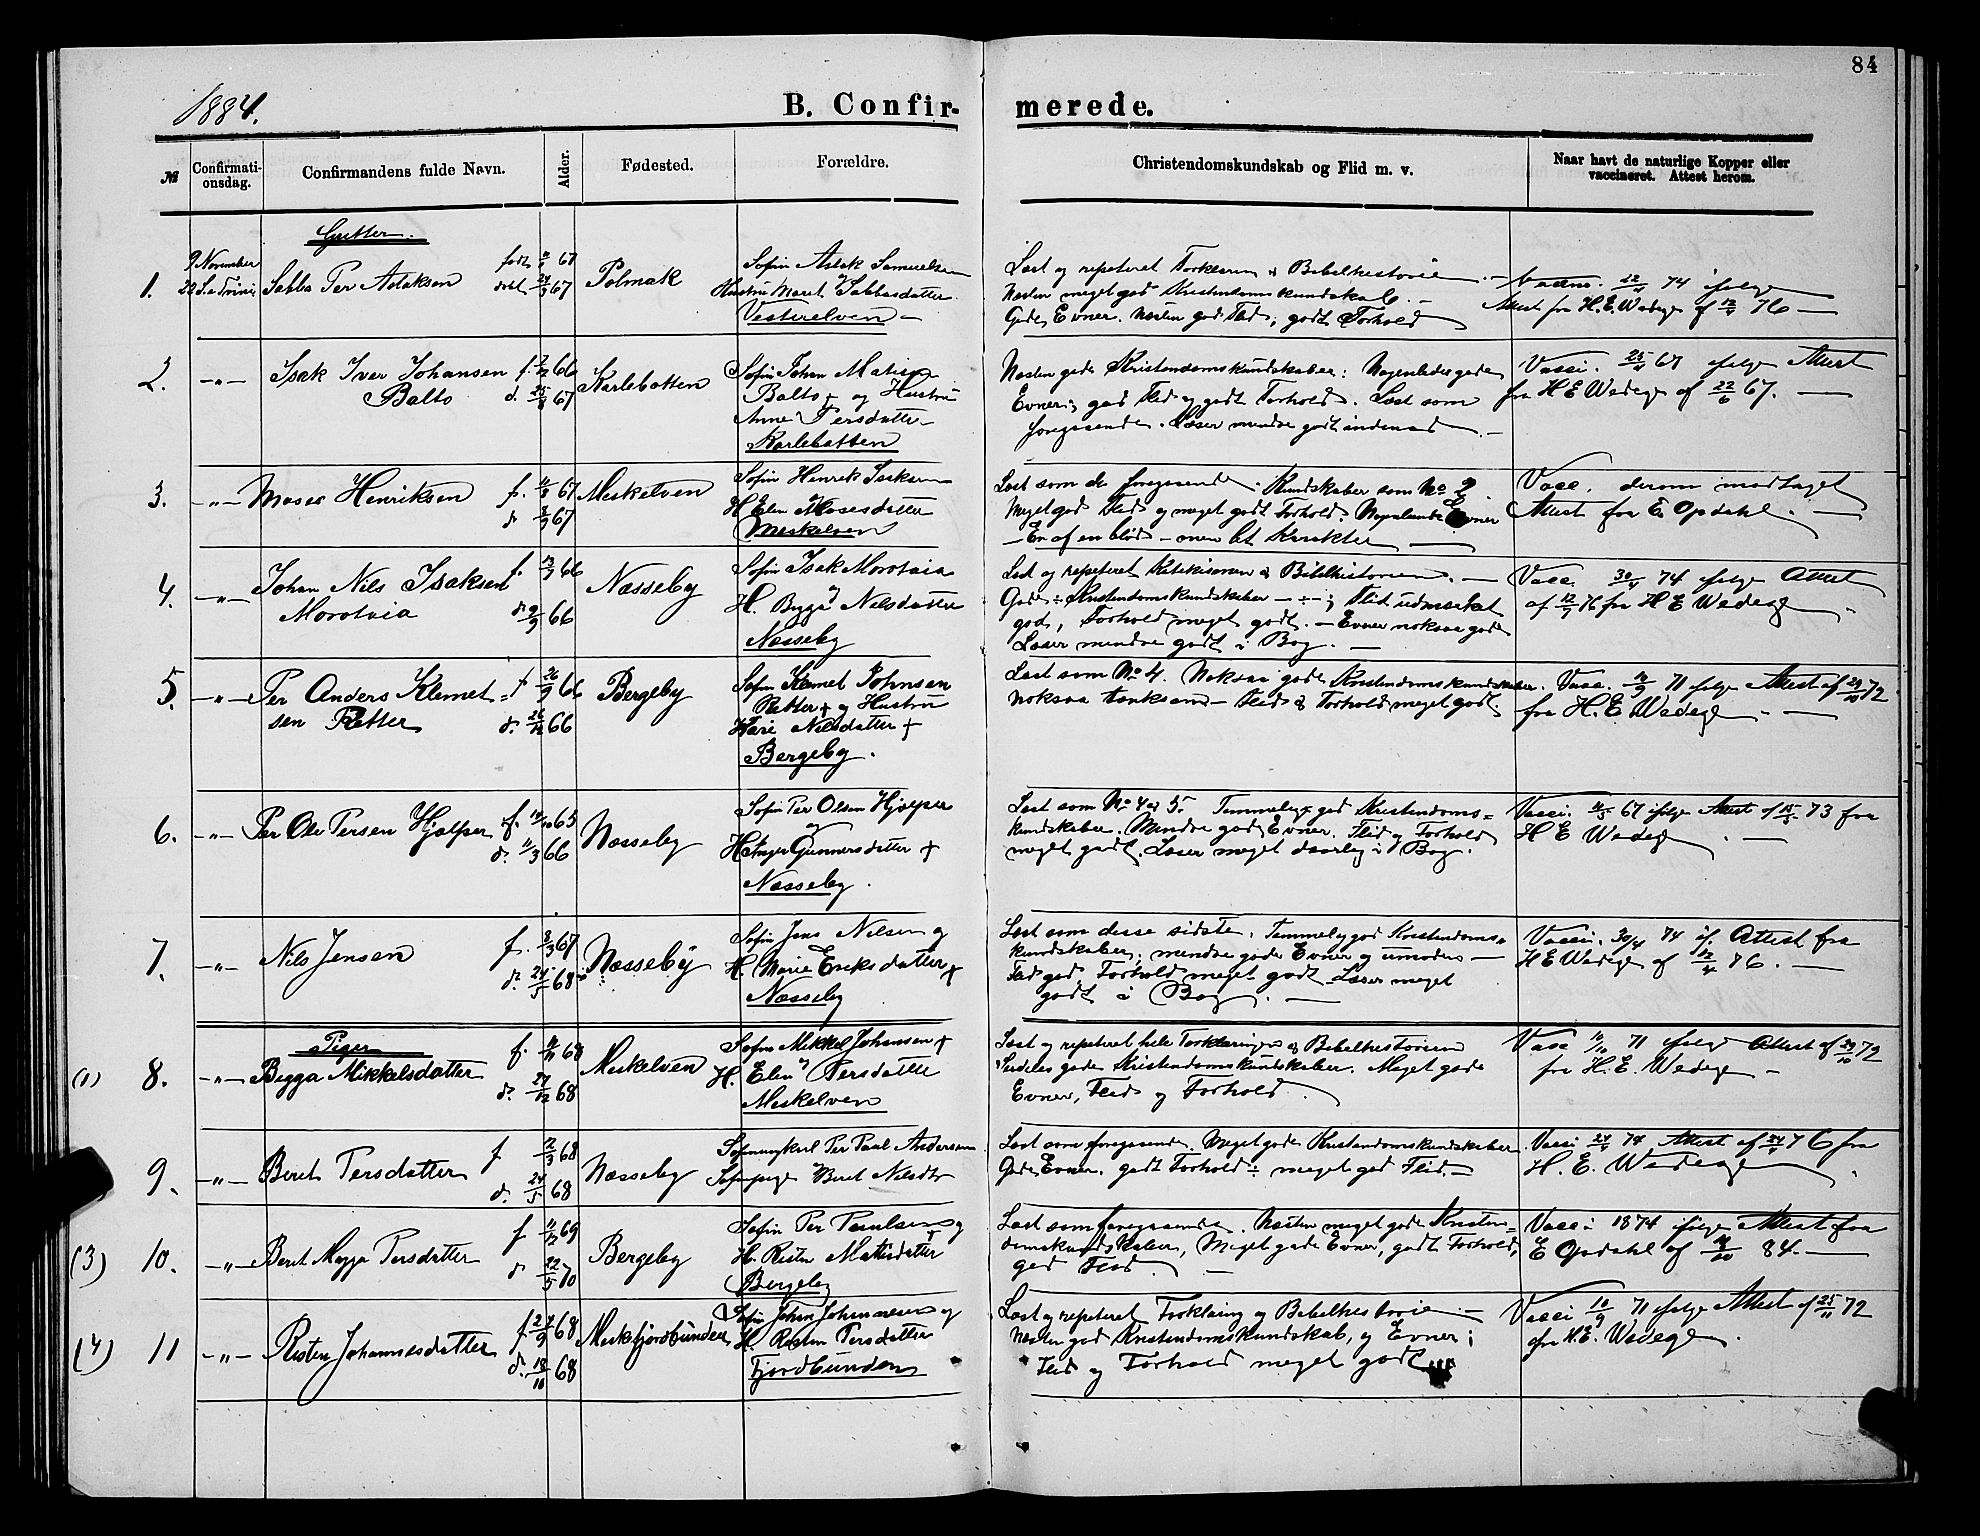 84
1884.
B. Confirmerede.
№ Confirmationsdag. Confirmandens fulde Navn. Alder. Fødested. Forældre. Christendomskundskab og Flid m. v. Naar havt de naturlige Kopper eller vaccineret. Attest herom.
Gutter.
1. 9 November 22 S. e. Trinit. Sabba Per Aslaksen født 67 døbt 67 Polmak
Søfin Aslak Samuelsen
og
Hustru Marit Sabbasdatter
Vesterelven
Læst og repeteret Forklaring & Bibelhistorie
Næsten meget god Kristendomskundskab.
Gode Evner. Næsten god Flid; godt Forhold
74 ifølge
Attest fra H. E. Wadege af 76
2. -"- Isak Iver Johansen f. 66
Balto d. 67
Karlebotten
Søfin Johan Matis
Balto + og Hustru
Anne Persdatter
Karlebotten
Næsten gode Kristendomskundskaber; Nogenledes gode
Evner; god Flid og godt Forhold. Læst som
foregaaende. Læser mindre godt indenad.
Vacci. 67 ifølge Attest
fra H E Wadege af 22/6 67.
3. -"- Moses Henriksen f. 67
d. 67
Meskelven
Søfin Henrik Isaksen
H. Elen Mosesdatter
Meskelven
Læst som de foregaaende. Kundskaber som No 2
Meget god Flid og meget godt Forhold. Evner
Er af en blød - men Karakter
Vacc. derom modtaget
Attest fra E. Opdahl.
4. -"- Johan Nils Isaksen f. 66
Morotaia d. 9/9 66
Næsseby
Søfin Isak Morotaia
og
H. Bygga Nilsdatter
Næsseby
Læst og repeteret Katekismen & Bibelhistorien.
Gode Kristendomskundskaber; Flid udmærket
god, Forhold meget godt. - Evner noksaa gode
Læser mindre godt i Bog.
Vacc. 30/4 74 ifølge Attest
af 76 fra H E Wadege
5. -"- Per Anders Klemet= f. 26/9 66
sen Ratter d. 66
Bergeby
Søfin Klemet Johnsen
Ratter + og Hustru
Kari Nilsdatter +
Bergeby.
Læst som No 4. Noksaa gode Kristendomskundskaber.
noksaa tænksom - Flid & Forhold meget godt.
Vacc. 71 ifølge Attest af 72
fra H. E Wadege
6. -"- Per Ole Persen Hjelper f. 65
d. 11/3 66
Næsseby
Søfin Per Olsen Hjelper
og
H. Inger Gunnersdatter +
Næsseby.
Læst som No 4 & 5. Temmelig god Kristendoms=
kundskaber. Mindre gode Evner. Flid og Forhold
meget godt. Læser meget daarlig i Bog.
Vacci. 67 ifølge Attest af 73 fra
H E Wadege
7. -"- Nils Jensen f. 8/3 67
d. 24/5 68
Næsseby
Søfin Jens Nilsen og
H. Marie Eriksdatter +
Næsseby
Læst som disse sidste. Temmelig god Kristendoms=
kundskaber; mindre gode Evner og umoden
Flid god, Forhold meget godt. Læser meget
godt i Bog.
Vacci. 30/4 74 if. Attest fra
H E Wadege af 12/4 76.
Piger
(1) 8. -"- Bigga Mikkelsdatter f. 68
d. 27/12 68
Meskelven
Søfin Mikkel Johansen +
og
H. Elen Persdatter
Meskelven
Læst og repeteret hele Forklaringen & Bibelhistorien
Særdeles gode Kristendomskundskaber. Meget gode
Evner, Flid og Forhold.
Vacc 71 ifølge Attest af 29/10 72
fra H. E. Wadege
9. -"- Berit Persdatter f. 68
d. 24/5 68
Næsseby
Søfinungkarl Per Paul Andersen
Søfinpige Berit Nilsdtr
Læst som foregaaende. Meget gode Kristendomskundskaber
Gode Evner. godt Forhold; meget god Flid.
Vacci 74 Attest af 76 fra
H. E. Wadege
(3) 10. -"- Berit Magga Persdatter f. 69
d. 22/5 70
Bergeby
Søfin Per Paulsen og
H. Risten Matisdatter
Bergeby
Læst som foregaaende. Næsten meget gode Kristen=
domskundskaber, Meget gode Evner, godt Forhold,
god Flid.
Vacci 1874 ifølge Attest fra
E Opdahl af 84.
(4) 11 -"- Risten Johannesdatter f. 68
d. 68
Meskfjordbunden
Søfin Johan Johannesen og
H. Risten Persdatter
Fjordbunden
Læst og repeteret Forklaring og Bibelhistorie
Næsten god Kristendomskundskab, og Evner;
Flid og Forhold meget godt
Vacci 10/9 71 ifølge Attest af 25/11 72
fra H. E. Wadege.